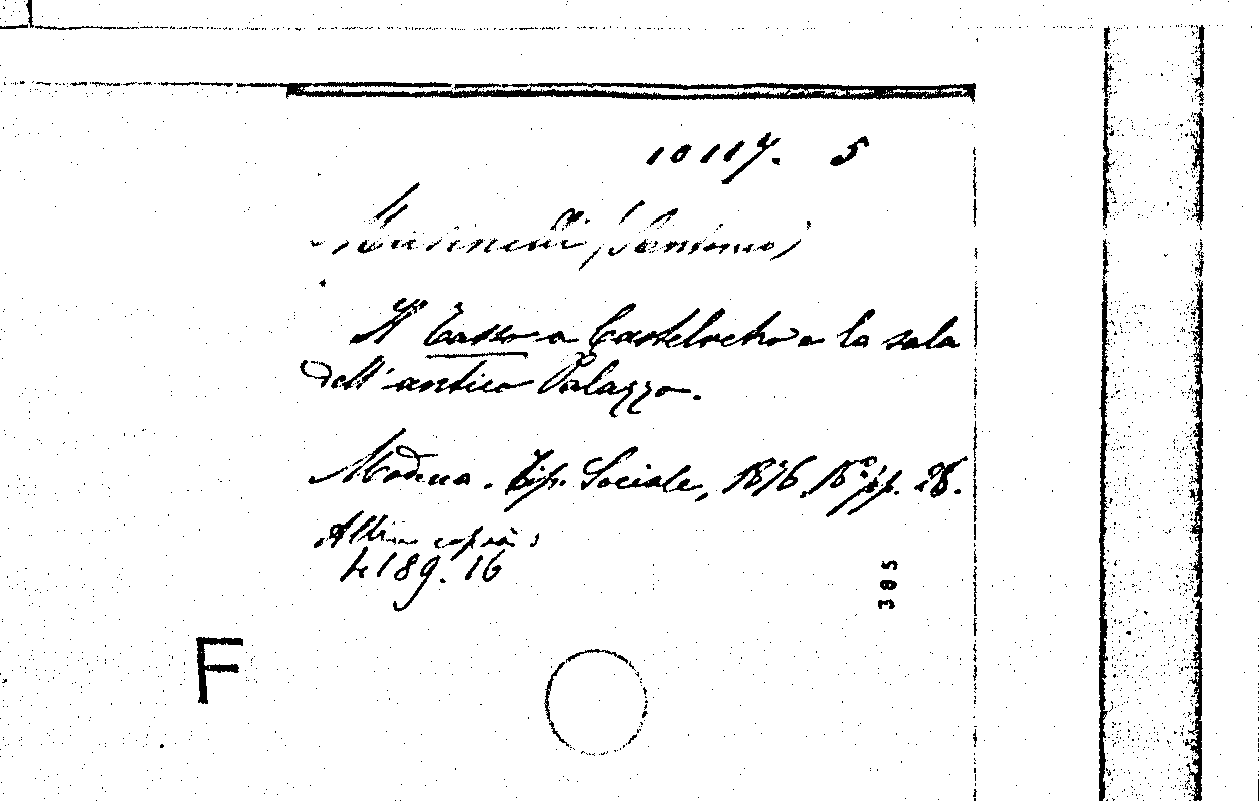 10117. 5
(Santonio)
Il Tasso a Castelvetro e la sala
dell'antico Palazzo.
Modena. Tip. Sociale, 1876. 16° pp. 28.
Altra copia:
4189. 16
385
F